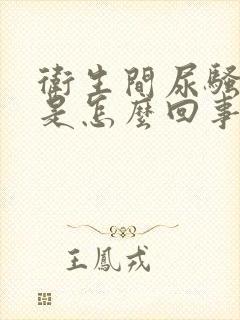 衛生間尿騷
是怎麼回事
王鳳戎